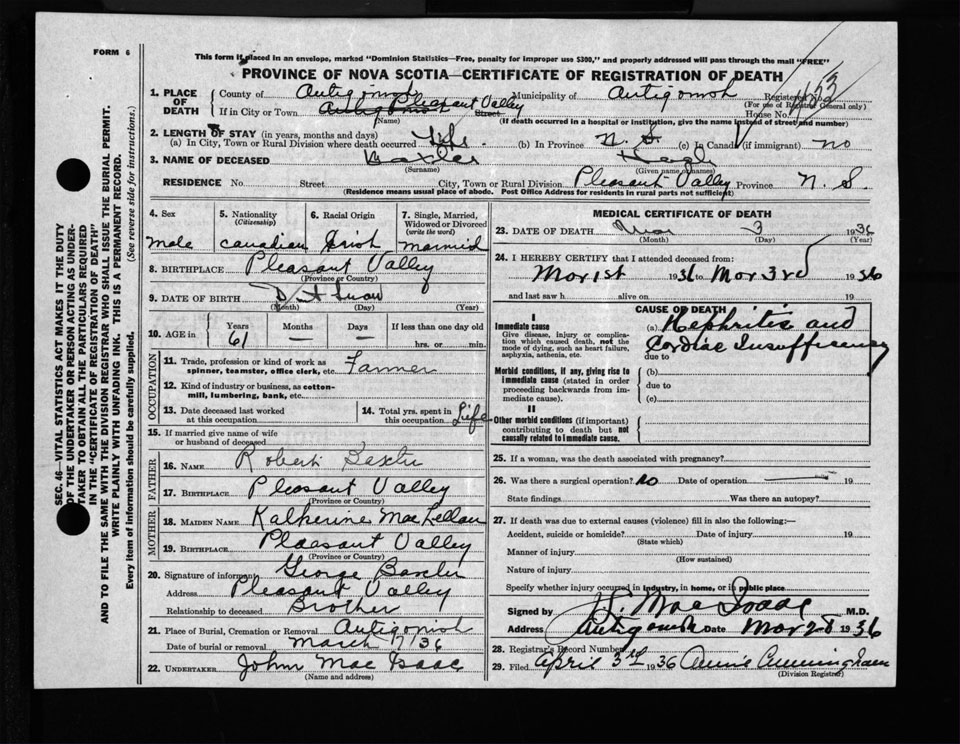 FORM 6
This form if placed in an envelope, marked "Dominion Statistics—Free, penalty for improper use $300," and properly addressed will pass through the mail "FREE"
PROVINCE OF NOVA SCOTIA—CERTIFICATE OF REGISTRATION OF DEATH
1. PLACE OF DEATH County of Antigonish Municipality of Antigonish Registered No.
(For use of Registrar General only)
If in City or Town Pleasant Valley Street House No.
(Name) (If death occurred in a hospital or institution, give the name instead of street and number)
2. LENGTH OF STAY (in years, months and days)
(a) In City, Town or Rural Division where death occurred Life (b) In Province N. S. (c) In Canada (if immigrant) no
3. NAME OF DECEASED Baxter Hugh
(Surname) (Given name or names)
RESIDENCE No. Street City, Town or Rural Division Pleasant Valley Province N. S.
(Residence means usual place of abode. Post Office Address for residents in rural parts not sufficient)
SEC. 46—VITAL STATISTICS ACT MAKES IT THE DUTY
OF THE UNDERTAKER OR PERSON ACTING AS UNDER-
TAKER TO OBTAIN ALL THE PARTICULARS REQUIRED
IN THE "CERTIFICATE OF REGISTRATION OF DEATH"
AND TO FILE THE SAME WITH THE DIVISION REGISTRAR WHO SHALL ISSUE THE BURIAL PERMIT.
WRITE PLAINLY WITH UNFADING INK. THIS IS A PERMANENT RECORD.
Every item of information should be carefully supplied. (See reverse side for instructions.)
4. Sex
male
5. Nationality
(Citizenship)
Canadian
6. Racial Origin
Irish
7. Single, Married, Widowed or Divorced
(write the word)
married
8. BIRTHPLACE Pleasant Valley
(Province or Country)
9. DATE OF BIRTH
(Month) (Day) (Year)
10. AGE in Years Months Days If less than one day old
61 — — hrs. or min.
OCCUPATION
11. Trade, profession or kind of work as
spinner, teamster, office clerk, etc. Farmer
12. Kind of industry or business, as cotton-
mill, lumbering, bank, etc.
13. Date deceased last worked
at this occupation
14. Total yrs. spent in
this occupation Life
15. If married give name of wife
or husband of deceased
FATHER
16. NAME Robert Baxter
17. BIRTHPLACE Pleasant Valley
(Province or Country)
MOTHER
18. MAIDEN NAME Katherine MacLellan
19. BIRTHPLACE Pleasant Valley
(Province or Country)
20. Signature of informant George Baxter
Address Pleasant Valley
Relationship to deceased Brother
21. Place of Burial, Cremation or Removal Antigonish
Date of burial or removal March 7/36
22. UNDERTAKER John Mac Isaac
(Name and address)
MEDICAL CERTIFICATE OF DEATH
23. DATE OF DEATH Mar 3 1936
(Month) (Day) (Year)
24. I HEREBY CERTIFY that I attended deceased from:
Mar 1st 1936 to Mar 3rd 1936
and last saw h alive on 19
CAUSE OF DEATH
I
Immediate cause
Give disease, injury or complica-
tion which caused death, not the
mode of dying, such as heart failure,
asphyxia, asthenia, etc.
(a) Nephritis and
Cardiac Insufficiency
due to
Morbid conditions, if any, giving rise to
immediate cause (stated in order
proceeding backwards from im-
mediate cause).
(b)
due to
(c)
II
Other morbid conditions (if important)
contributing to death but not
causally related to immediate cause.
25. If a woman, was the death associated with pregnancy?
26. Was there a surgical operation? no Date of operation 19
State findings Was there an autopsy?
27. If death was due to external causes (violence) fill in also the following:—
Accident, suicide or homicide? Date of injury 19
(State which)
Manner of injury
(How sustained)
Nature of injury
Specify whether injury occurred in industry, in home, or in public place
Signed by H. MacIsaac M.D.
Address Antigonish Date Mar 28 1936
28. Registrar's Record Number
29. Filed April 3rd 1936 Annie Cunningham
(Division Registrar)